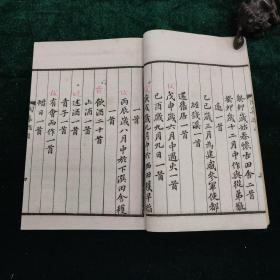 癸卯歲始春懷古田舍二首
癸卯十二月中作與從弟敬
遠一首
乙巳歲三月為建威參軍使都
經錢溪一首
還舊居一首
戊申歲六月中遇火一首
己酉歲九月九日一首
庚戌歲九月中於西田穫早稻
一首
丙辰歲八月中於下潠田舍穫
一首
飲酒二十首
止酒一首
述酒一首
責子一首
有會而作一首
蜡日一首